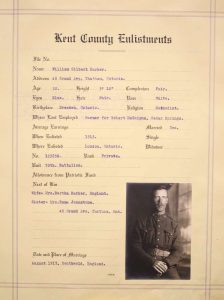 Kent County Enlistments
File No.
Name William Gilbert Barker.
Address 45 Grand Ave. Chatham, Ontario.
Age 22. Height 5' 10" Complexion Fair.
Eyes Blue. Hair Fair. Race White.
Birthplace Dresden, Ontario. Religion Methodist.
Where Last Employed Farmer for Robert
Average Earnings Married Yes.
When Enlisted 1915. Single
Where Enlisted London, Ontario. Widower
No. Rank Private.
Unit Battalion.
Allowance from Patriotic Fund
Next of Kin
Wife: Mrs. Martha Barker, England.
Sister: Mrs. Emma Johnstone.
45 Grand Ave. Chatham, Ont.
Date and Place of Marriage
August 1917, England.